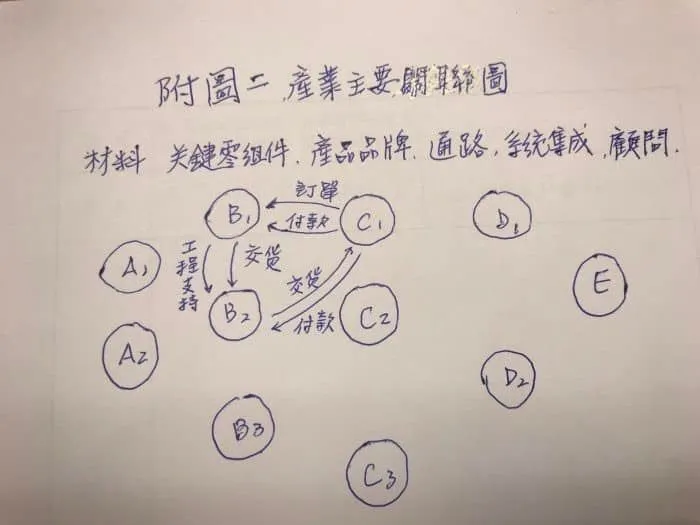 附圖二.產業主要關聯圖
材料 关鍵零組件.產品品牌.通路,系統集成,顧問.
訂單
B1 付款 C1 D1
工程支持 交货
A1 交货 E
B2 付款 C2
A2
D2
B3
C3